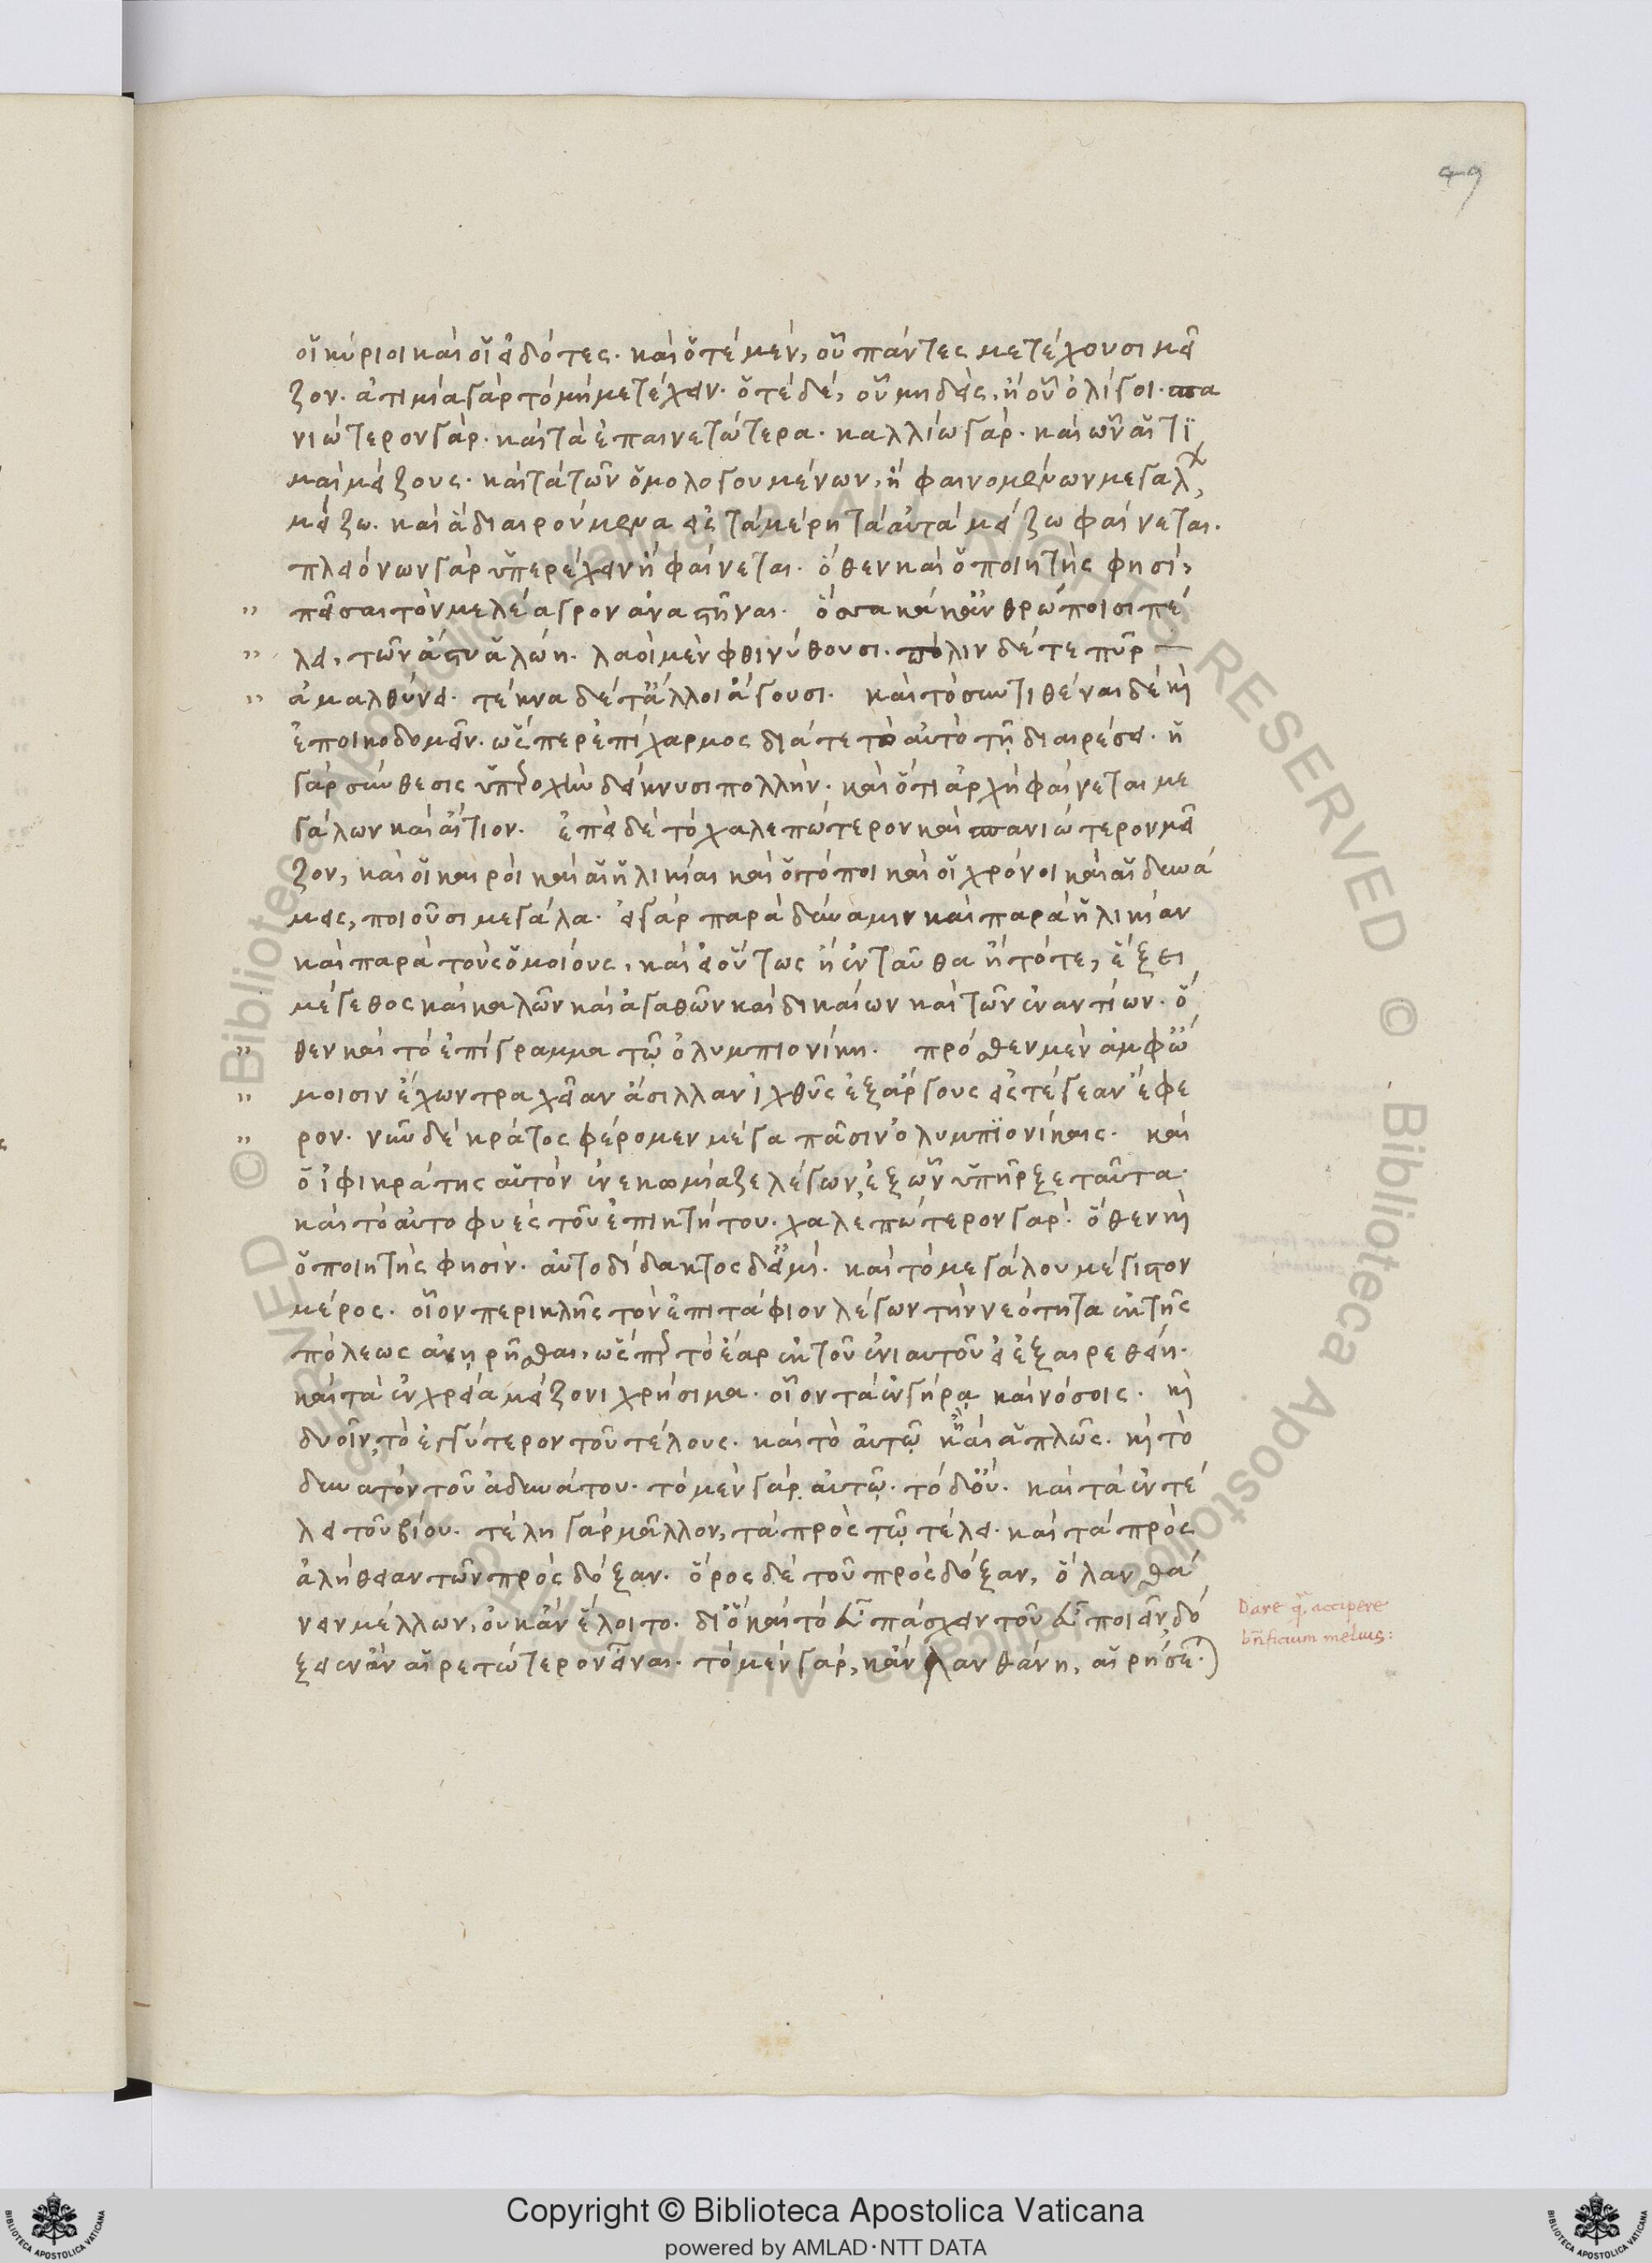 49
οἱ κύριοι καὶ οἱ εἰδότες. καὶ ὁτὲ μὲν, οὗ πάντες μετέχουσι μεῖ
ζον. ἀτιμία γὰρ τὸ μὴ μετέχειν. ὁτὲ δὲ, οὗ μηδεὶς, ἢ οὗ ὀλίγοι. σπα
νιώτερον γάρ. καὶ τὰ ἐπαινετώτερα. καλλίω γάρ. καὶ ὧν αἱ τι
μαὶ μείζους. καὶ τὰ τῶν ὁμολογουμένων, ἢ φαινομένων μεγάλ
μείζω. καὶ ἃ διαιρούμενα εἰς τὰ μέρη τὰ αὐτὰ μείζω φαίνεται.
πλειόνων γὰρ ὑπερέχειν ἢ φαίνεται. ὅθεν καὶ ὁ ποιητής φησί,
" πεῖσαι τὸν μελέαγρον ἀναστῆναι. ὅσσα κάκ' ἀνθρώποισι πέ
" λει, τῶν ἄστυ ἁλώη. λαοὶ μὲν φθινύθουσι. πόλιν δέ τε πῦρ
" ἀμαλθύνει. τέκνα δέ τ' ἄλλοι ἄγουσι. καὶ τὸ συντιθέναι δὲ κὶ
ἐποικοδομεῖν. ὥσπερ ἐπίχαρμος διά τε τὸ αὐτὸ τῇ διαιρέσει. ἡ
γὰρ σύνθεσις ὑπεροχὴν δείκνυσι πολλήν. καὶ ὅτι ἀρχὴ φαίνεται με
γάλων καὶ αἴτιον. ἐπεὶ δὲ τὸ χαλεπώτερον καὶ σπανιώτερον μεῖ
ζον, καὶ οἱ καιροὶ καὶ αἱ ἡλικίαι καὶ οἱ τόποι καὶ οἱ χρόνοι καὶ αἱ δυνά
μεις, ποιοῦσι μεγάλα. εἰ γὰρ παρὰ δύναμιν καὶ παρὰ ἡλικίαν
καὶ παρὰ τοὺς ὁμοίους, καὶ εἰ οὕτως ἢ ἐνταῦθα ἢ τότε, ἕξει
μέγεθος καὶ καλῶν καὶ ἀγαθῶν καὶ δικαίων καὶ τῶν ἐναντίων. ὅ
" θεν καὶ τὸ ἐπίγραμμα τῷ ὀλυμπιονίκῃ. πρόσθεν μὲν ἀμφ' ὤ
" μοισιν ἔχων τραχεῖαν ἄσιλλαν ἰχθῦς ἐξ ἄργους εἰς τέγεαν ἔφε
" ρον. νῦν δὲ κράτος φέρομεν μέγα πᾶσιν ὀλυμπιονίκαις. καὶ
ὁ ἰφικράτης αὑτὸν ἐνεκωμίαζε λέγων, ἐξ ὧν ὑπῆρξε ταῦτα.
καὶ τὸ αὐτοφυὲς τοῦ ἐπικτήτου. χαλεπώτερον γάρ. ὅθεν κὶ
ὁ ποιητής φησιν. αὐτοδίδακτος δ' εἰμί. καὶ τὸ μεγάλου μέγιστον
μέρος. οἷον περικλῆς τὸν ἐπιτάφιον λέγων τὴν νεότητα ἐκ τῆς
πόλεως ἀνῃρῆσθαι, ὥσπερ τὸ ἔαρ ἐκ τοῦ ἐνιαυτοῦ εἰ ἐξαιρεθείη.
καὶ τὰ ἐν χρείᾳ μείζονι χρήσιμα. οἷον τὰ ἐν γήρᾳ καὶ νόσοις. κὶ
δυοῖν, τὸ ἐγγύτερον τοῦ τέλους. καὶ τὸ αὐτῷ ἢ καὶ ἁπλῶς. κὶ τὸ
δυνατὸν τοῦ ἀδυνάτου. τὸ μὲν γὰρ αὐτῷ. τὸ δ' οὔ. καὶ τὰ ἐν τέ
λει τοῦ βίου. τέλη γὰρ μᾶλλον, τὰ πρὸς τῷ τέλει. καὶ τὰ πρὸς
ἀλήθειαν τῶν πρὸς δόξαν. ὅρος δὲ τοῦ πρὸς δόξαν, ὃ λανθά
νειν μέλλων, οὐκ ἂν ἕλοιτο. διὸ καὶ τὸ εὖ πάσχειν τοῦ εὖ ποιεῖν, δό
ξειεν ἂν αἱρετώτερον εἶναι. τὸ μὲν γὰρ, κἂν λανθάνῃ, αἱρήσε
Dare q̃ accipere
bñficium melius: